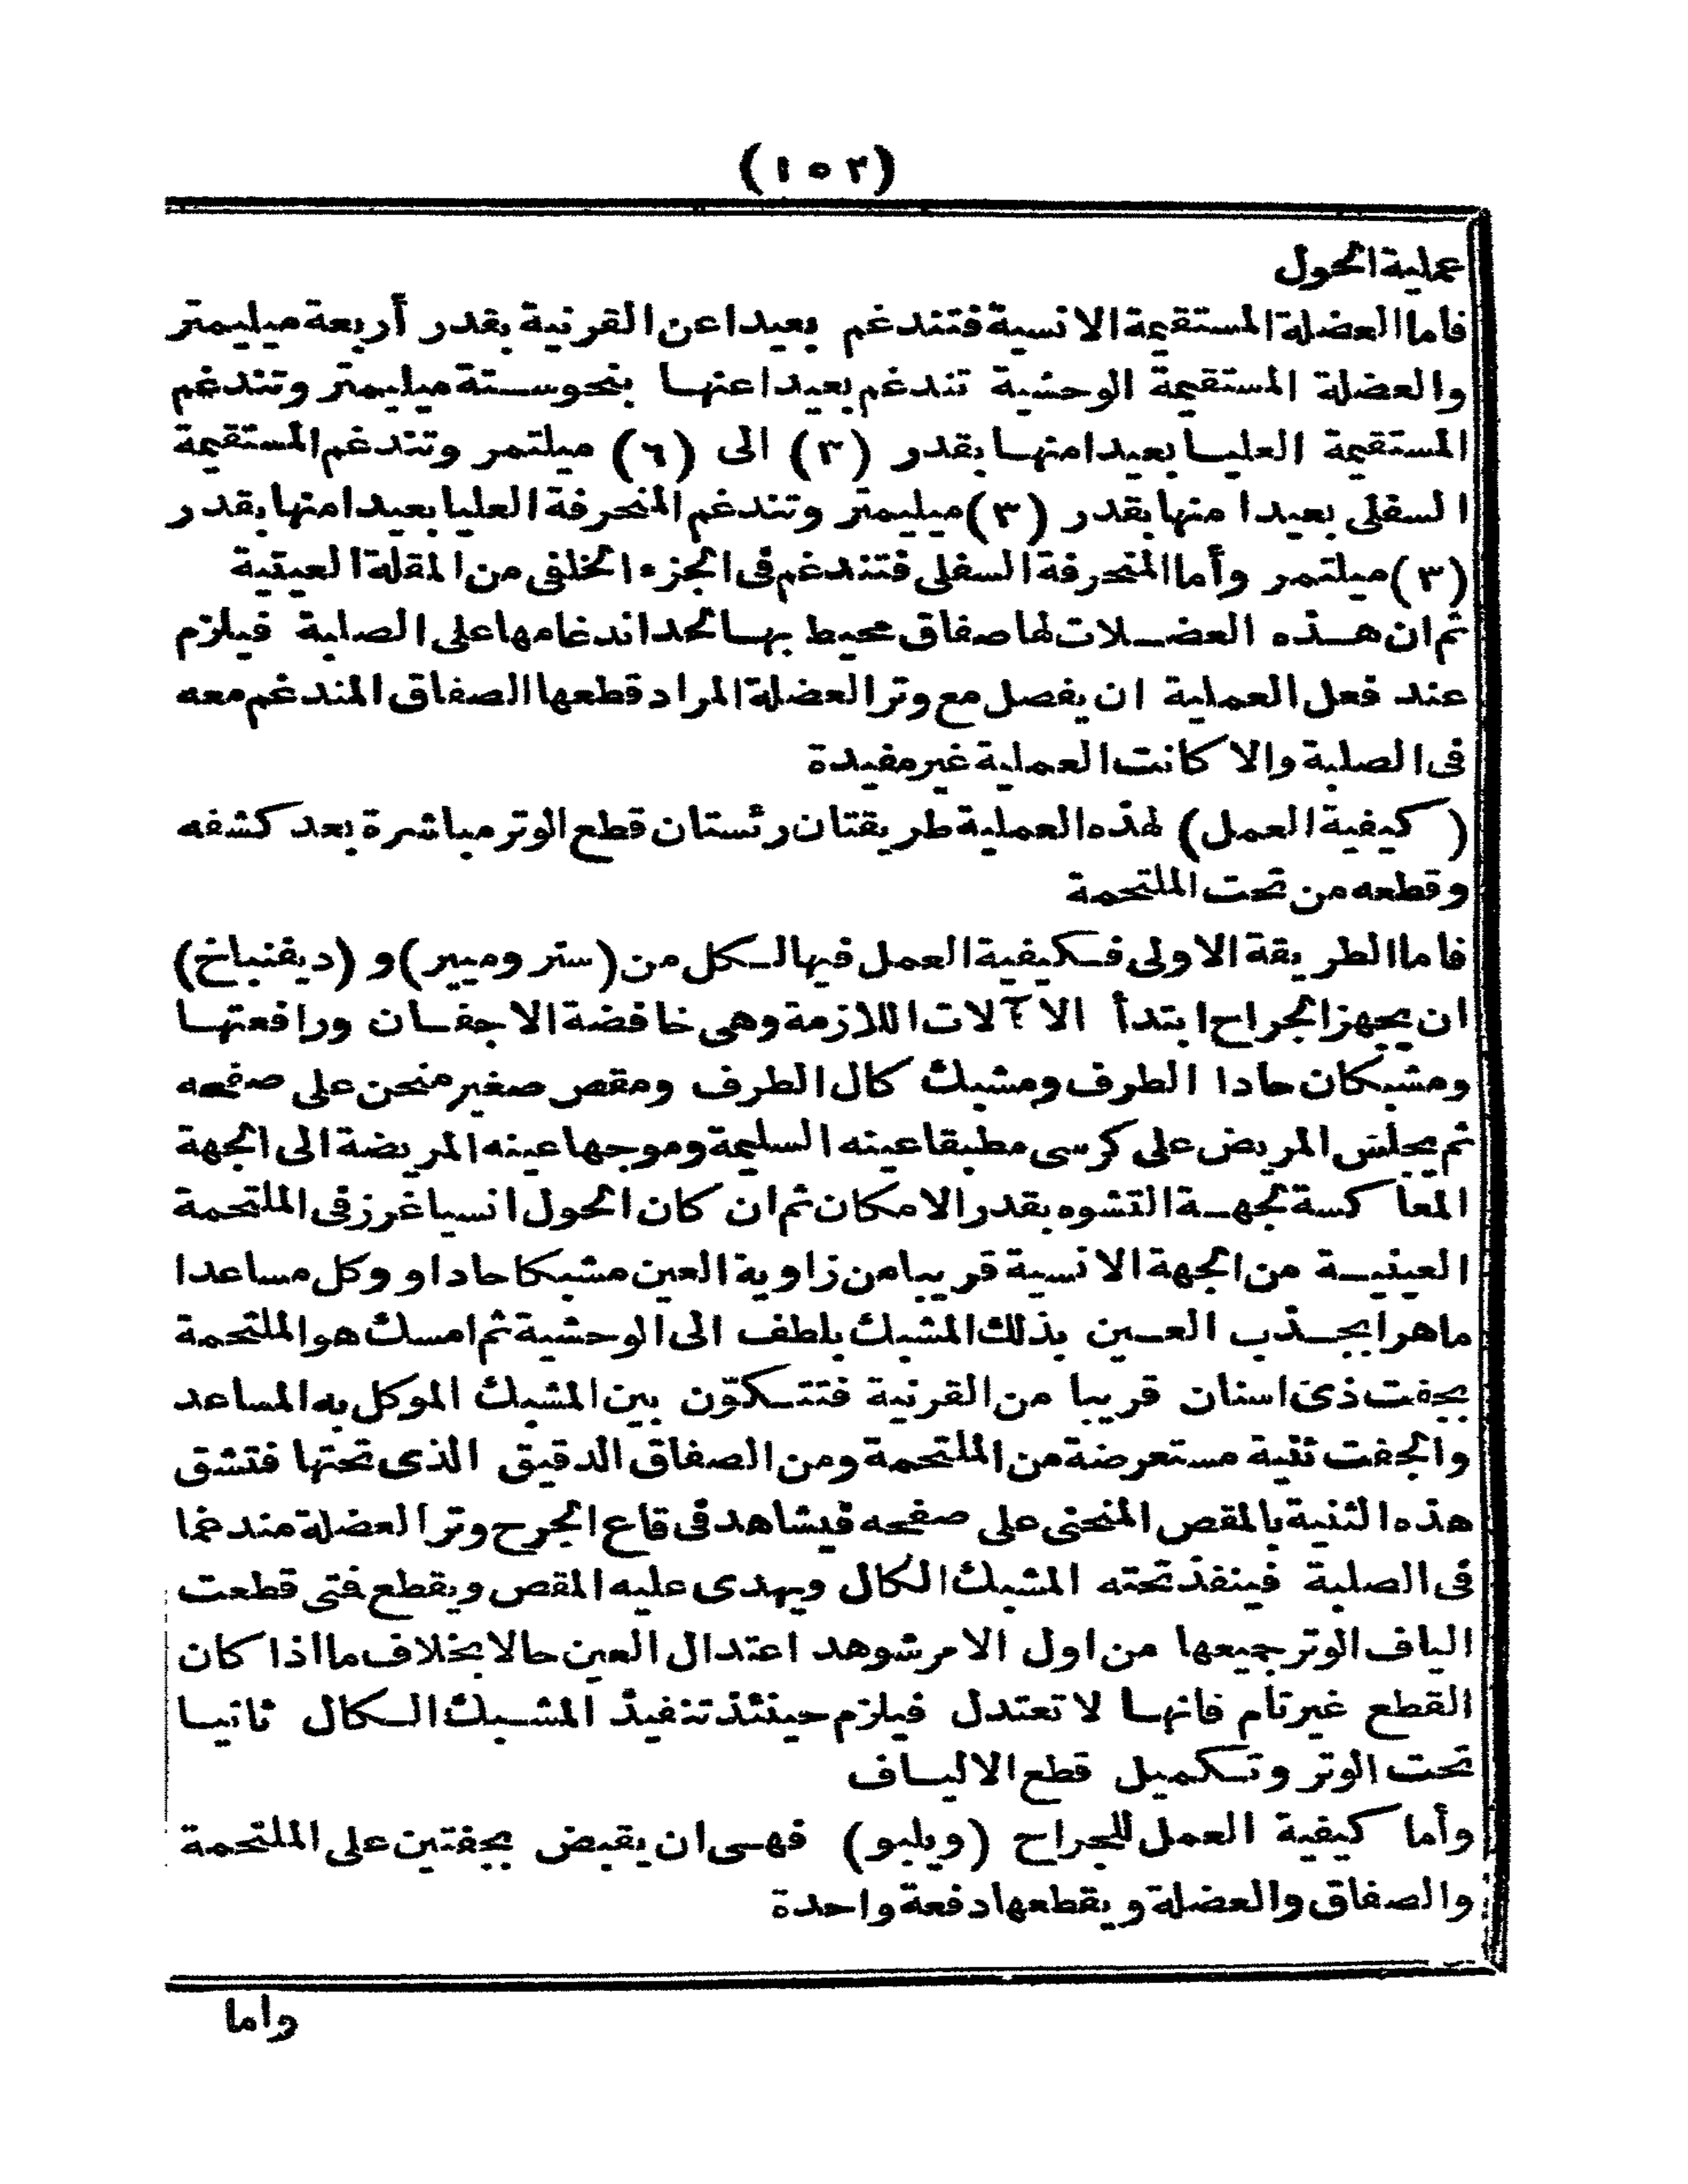 (١٥٢)
عملية الحول
فاما العضلة المستقيمة الانسية فتندغم بعيدا عن القرنية بقدر أربعة ميليمتر
والعضلة المستقيمة الوحشية تندغم بعيدا عنها بنحو ستة ميليمتر وتندغم
المستقيمة العليا بعيدا منها بقدر (٣) الى (٦) ميلتمر وتندغم المستقيمة
السفلى بعيدا منها بقدر (٣) ميليمتر وتندغم المنحرفة العليا بعيدا منها بقدر
(٣) ميلتمر وأما المنحرفة السفلى فتندغم فى الجزء الخلفى من المقلة العينية
ثم ان هذه العضلات لها صفاق محيط بها لحد اندغامها على الصلبة فيلزم
عند فعل العملية ان يفصل مع وتر العضلة المراد قطعها الصفاق المندغم معه
فى الصلبة والا كانت العملية غير مفيدة
(كيفية العمل) لهذه العملية طريقتان رئستان قطع الوتر مباشرة بعد كشفه
وقطعه من تحت الملتحمة
فاما الطريقة الاولى فكيفية العمل فيها لكل من (ستروميير) و (ديفنباخ)
ان يجهز الجراح ابتدأ الا آلات اللازمة وهى خافضة الاجفان ورافعتها
ومشبكان حادا الطرف ومشبك كال الطرف ومقص صغير منحن على صفحه
ثم يجلس المريض على كرسى مطبقا عينه السليمة وموجها عينه المريضة الى الجهة
المعاكسة لجهة التشوه بقدر الامكان ثم ان كان الحول انسيا غرز فى الملتحمة
العينية من الجهة الانسية قريبا من زاوية العين مشبكا حادا ووكل مساعدا
ماهرا بجذب العين بذلك المشبك بلطف الى الوحشية ثم امسك هو الملتحمة
بجفت ذى اسنان قريبا من القرنية فتتكوّن بين المشبك الموكل به المساعد
والجفت ثنية مستعرضة من الملتحمة ومن الصفاق الدقيق الذى تحتها فتشق
هذه الثنية بالمقص المنحنى على صفحه فيشاهد فى قاع الجرح وتر العضلة مندغما
فى الصلبة فينفذ تحته المشبك الكال ويهدى عليه المقص ويقطع فتى قطعت
الياف الوتر جميعها من اول الامر شوهد اعتدال العين حالا بخلاف ما اذا كان
القطع غير تام فانها لا تعتدل فيلزم حينئذ تنفيذ المشبك الكال ثانيا
تحت الوتر وتكميل قطع الالياف
وأما كيفية العمل للجراح (ويلبو) فهى ان يقبض بجفتين على الملتحمة
والصفاق والعضلة ويقطعها دفعة واحدة
واما